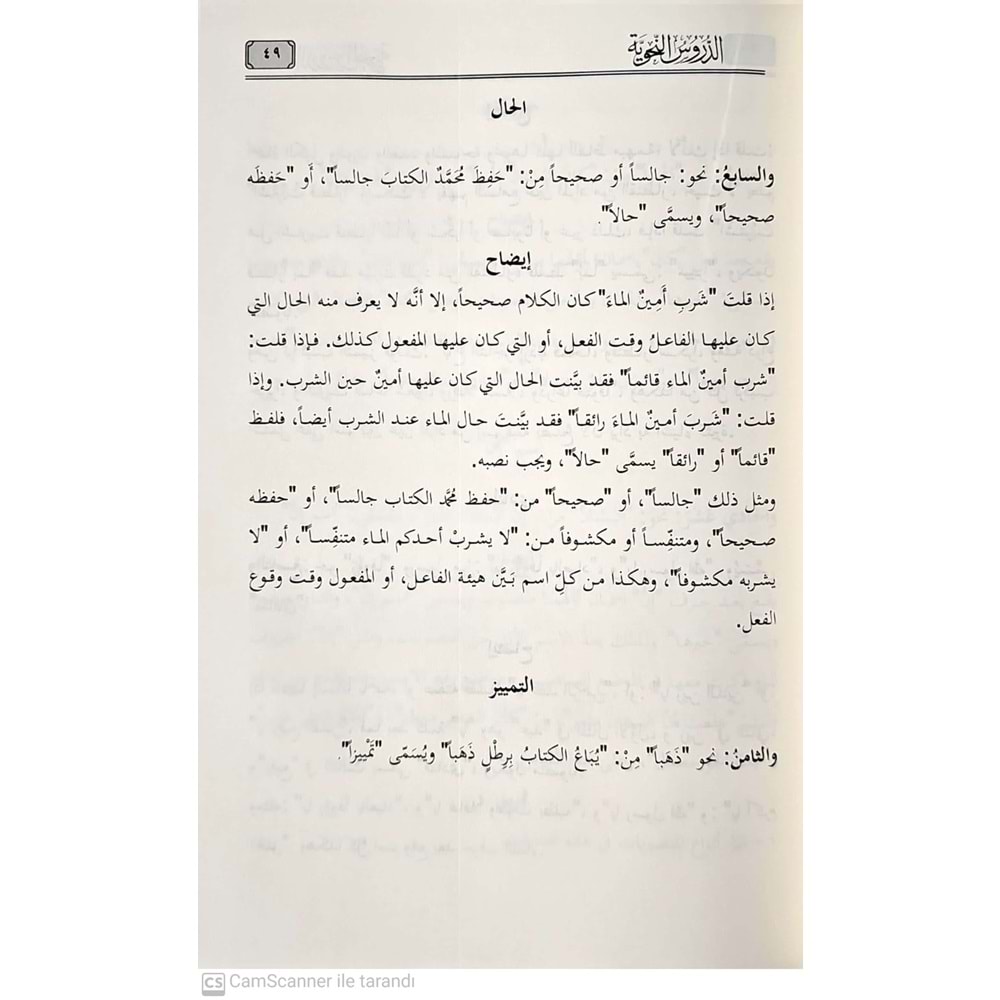 الدُّرُوسُ النَّحْوِيَّة
٤٩
الحال
والسابعُ: نحو: جالساً أو صحيحاً مِنْ: "حَفِظَ مُحَمَّدٌ الكتابَ جالساً"، أَو "حَفظَه
صحيحاً"، ويسمَّى "حالاً".
إيضاح
إذا قلتَ "شَربِ أَمِينٌ الماءَ" كان الكلام صحيحاً، إلا أنَّه لا يعرف منه الحال التي
كان عليها الفاعلُ وقت الفعل، أو التي كان عليها المفعول كذلك. فإذا قلت:
"شرب أمينٌ الماء قائماً" فقد بيَّنت الحال التي كان عليها أمينٌ حين الشرب. وإذا
قلت: "شَربَ أمينٌ الماءَ رائقاً" فقد بيَّنتَ حال الماء عند الشرب أيضاً، فلفظ
"قائماً" أو "رائقاً" يسمَّى "حالاً"، ويجب نصبه.
ومثل ذلك "جالساً"، أو "صحيحاً" من: "حفظ محُمَّد الكتاب جالساً"، أو "حفظه
صحيحاً"، ومتنفّساً أو مكشوفاً من: "لا يشربْ أحدكم الماء متنفّساً"، أو "لا
يشربه مكشوفاً"، وهكذا من كلِّ اسم بَيَّن هيئة الفاعل، أو المفعول وقت وقوع
الفعل.
التمييز
والثامنُ: نحو "ذَهَباً" مِنْ: "يُبَاعُ الكتابُ بِرِطْلٍ ذَهَباً" ويُسَمّى "تَمْييزاً".
CS CamScanner ile tarandı